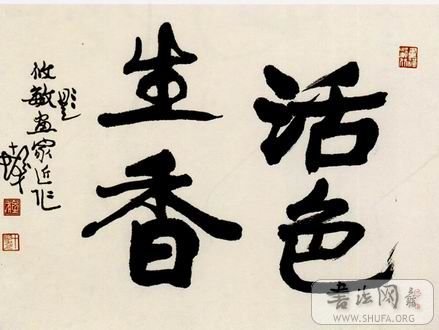 活色
生香
题
敏画家近作
书法网
WWW.SHUFA.ORG